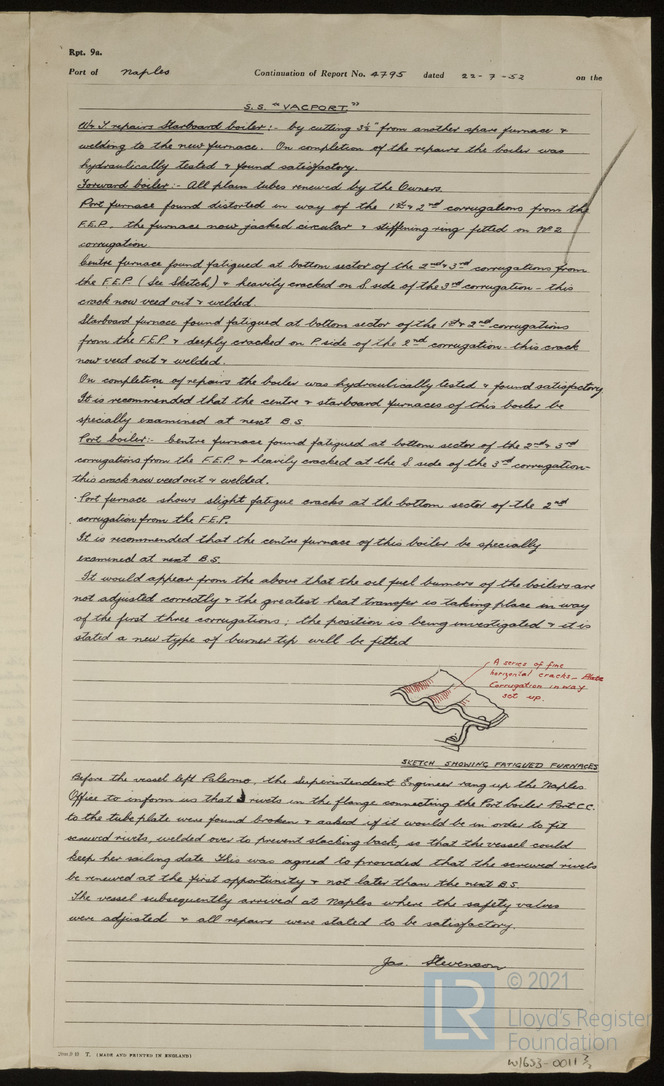 Rpt. 9a.
Port of Naples Continuation of Report No. 4795 dated 22-7-52 on the
S.S. "VACPORT."
W.&T. repairs Starboard boiler:- by cutting 3½" from another spare furnace &
welding to the new furnace. On completion of the repairs the boiler was
hydraulically tested & found satisfactory.
Forward boiler:- All plain tubes renewed by the Owners.
Port furnace found distorted in way of the 1st & 2nd corrugations from the
F.E.P., the furnace now jacked circular & stiffening ring fitted on No 2
corrugation
Centre furnace found fatigued at bottom sector of the 2nd & 3rd corrugations from
the F.E.P. (See Sketch) & heavily cracked on S side of the 3rd corrugation - this
crack now veed out & welded.
Starboard furnace found fatigued at bottom sector of the 1st & 2nd corrugations
from the F.E.P. & deeply cracked on P. side of the 2nd corrugation - this crack
now veed out & welded.
On completion of repairs the boiler was hydraulically tested & found satisfactory
It is recommended that the centre & starboard furnaces of this boiler be
specially examined at next B.S.
Port boiler:- Centre furnace found fatigued at bottom sector of the 2nd & 3rd
corrugations from the F.E.P. & heavily cracked at the S side of the 3rd corrugation-
this crack now veed out & welded.
Port furnace shows slight fatigue cracks at the bottom sector of the 2nd
corrugation from the F.E.P.
It is recommended that the centre furnace of this boiler be specially
examined at next B.S.
It would appear from the above that the oil fuel burners of the boilers are
not adjusted correctly & the greatest heat transfer is taking place in way
of the first three corrugations; the position is being investigated & it is
stated a new type of burner tip will be fitted
A series of fine
horizontal cracks - Plate
Corrugation in way
set up.
SKETCH SHOWING FATIGUED FURNACES
Before the vessel left Palermo, the Superintendent Engineer rang up the Naples
Office to inform us that 3 rivets in the flange connecting the Port boiler Port C.C.
to the tube plate were found broken & asked if it would be in order to fit
screwed rivets, welded over to prevent slacking back, so that the vessel could
keep her sailing date. This was agreed to provided that the screwed rivets
be renewed at the first opportunity & not later than the next B.S.
The vessel subsequently arrived at Naples where the safety valves
were adjusted & all repairs were stated to be satisfactory.
Jas. Stevenson
T. (MADE AND PRINTED IN ENGLAND)
LR
© 2021
Lloyd's Register
Foundation
W1633-0011 3/3